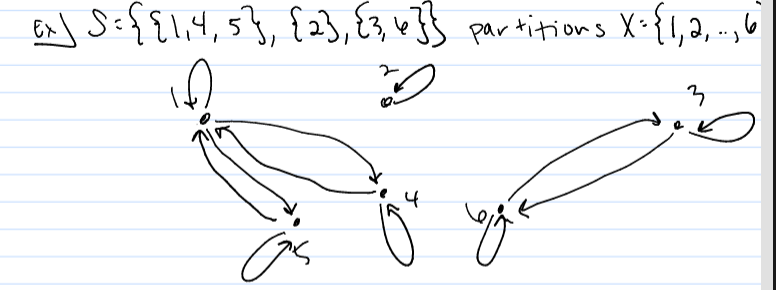 Ex] S={{1,4,5},{2},{3,6}} partitions X={1,2,..,6
2
3
1
4
6
5